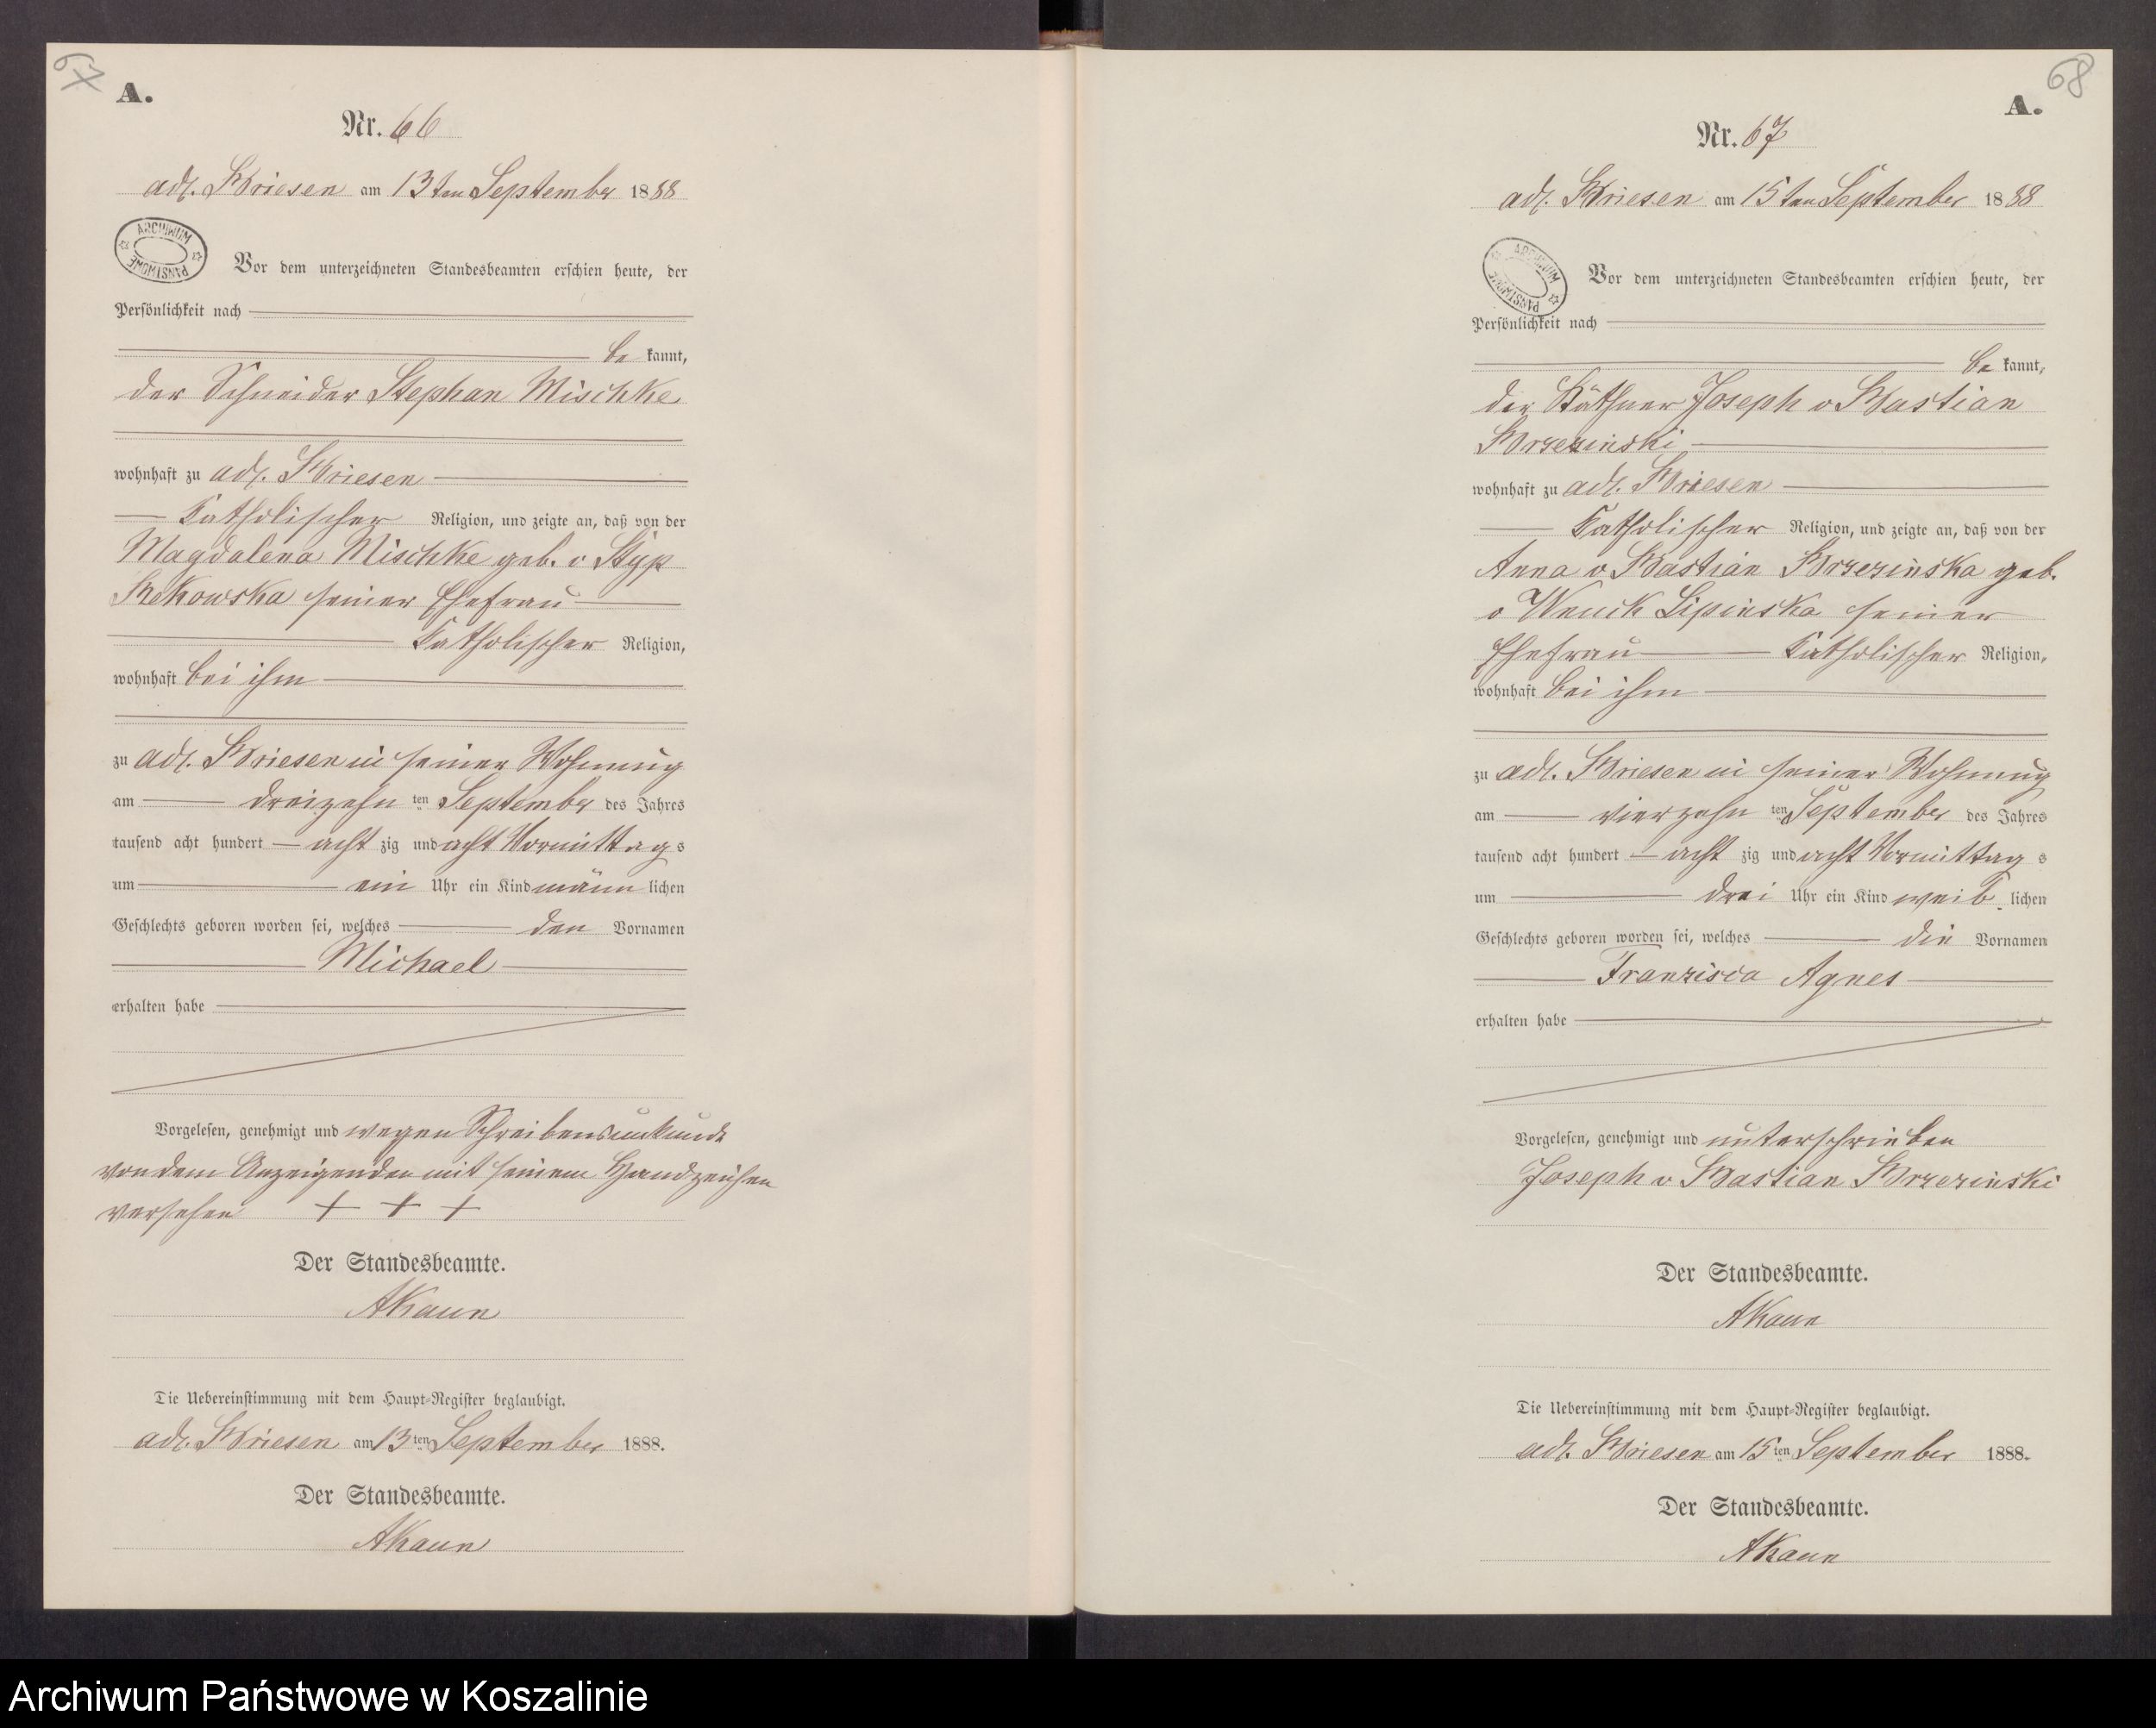 67
A.
Nr. 66
adl. Briesen am 13ten September 1888
ARCHIWUM PAŃSTWOWE
Vor dem unterzeichneten Standesbeamten erschien heute, der
Persönlichkeit nach
be kannt,
der Schneider Stephan Mischke
wohnhaft zu adl. Briesen
katholischer Religion, und zeigte an, daß von der
Magdalena Mischke geb. v Styp
Rekowska seiner Ehefrau
katholischer Religion,
wohnhaft bei ihm
zu adl. Briesen in seiner Wohnung
am dreizehn ten September des Jahres
tausend acht hundert acht zig und acht Vormittag s
um ein Uhr ein Kind männ lichen
Geschlechts geboren worden sei, welches den Vornamen
Michael
erhalten habe
Vorgelesen, genehmigt und wegen Schreibensunkunde
von dem Anzeigenden mit seinem Handzeichen
versehen + + +
Der Standesbeamte.
AKaun
Die Uebereinstimmung mit dem Haupt-Register beglaubigt.
adl. Briesen am 13ten September 1888.
Der Standesbeamte.
AKaun
68
A.
Nr. 67
adl. Briesen am 15ten September 1888
ARCHIWUM PAŃSTWOWE
Vor dem unterzeichneten Standesbeamten erschien heute, der
Persönlichkeit nach
be kannt,
der Käthner Joseph v Bastian
Brzezinski
wohnhaft zu adl. Briesen
katholischer Religion, und zeigte an, daß von der
Anna v Bastian Brzezinska geb.
v Wnuck Lipinska seiner
Ehefrau katholischer Religion,
wohnhaft bei ihm
zu adl. Briesen in seiner Wohnung
am vierzehn ten September des Jahres
tausend acht hundert acht zig und acht Vormittag s
um drei Uhr ein Kind weib lichen
Geschlechts geboren worden sei, welches die Vornamen
Franzisca Agnes
erhalten habe
Vorgelesen, genehmigt und unterschrieben
Joseph v Bastian Brzezinski
Der Standesbeamte.
AKaun
Die Uebereinstimmung mit dem Haupt-Register beglaubigt.
adl. Briesen am 15ten September 1888.
Der Standesbeamte.
AKaun
Archiwum Państwowe w Koszalinie